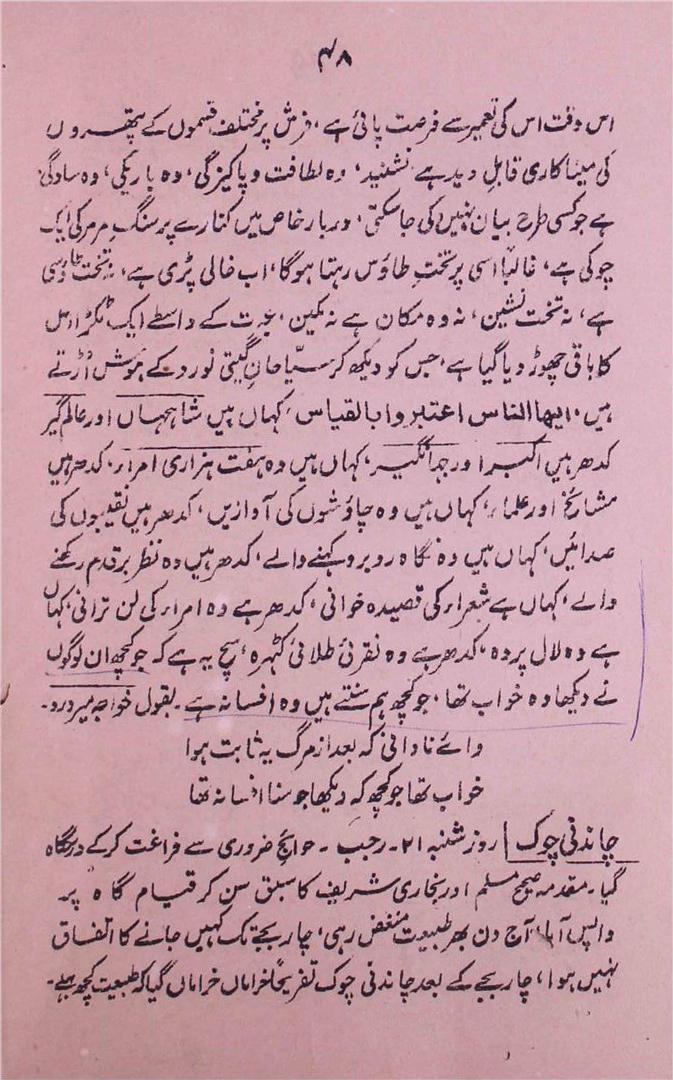 ۴۸
اس وقت اس کی تعمیر سے فرصت پائی ہے، فرش پر مختلف قسموں کے پتھروں
کی میناکاری قابلِ دید ہے نشئید، وہ لطافت و پاکیزگی، وہ باریکی، وہ سادگی
ہے جو کسی طرح بیان نہیں کی جاسکتی، دربار خاص میں کنارے پر سنگ مرمر کی ایک
چوکی ہے، غالباً اسی پر تخت طاؤس رہتا ہوگا، اب خالی پڑی ہے، نہ تخت طاؤسی
ہے، نہ تخت نشین، نہ وہ مکان ہے نہ مکین، عبرت کے واسطے ایک ٹکڑا دل
کا باقی چھوڑ دیا گیا ہے، جس کو دیکھ کر سیّاحانِ گیتی نورد کے ہوش اُڑتے
ہیں، ایھا الناس اعتبروا بالقیاس، کہاں ہیں شاہجہاں اور عالم گیر
کدھر ہیں اکبر اور جہانگیر، کہاں ہیں وہ ہفت ہزاری امراء، کدھر ہیں
مشائخ اور علماء، کہاں ہیں وہ چاؤشوں کی آوازیں، کدھر ہیں نقیبوں کی
صدائیں، کہاں ہیں وہ نگاہ روبرو کہنے والے، کدھر ہیں وہ نظر بر قدم رکھنے
والے، کہاں ہے شعراء کی قصیدہ خوانی، کدھر ہے وہ امراء کی لن ترانی، کہاں
ہے وہ لال پردہ، کدھر ہے وہ نقرئی طلائی کٹہرہ، سچ یہ ہے کہ جو کچھ ان لوگوں
نے دیکھا وہ خواب تھا، جو کچھ ہم سنتے ہیں وہ افسانہ ہے۔ بقول خواجہ میر درد۔
وائے نادانی کہ بعد از مرگ یہ ثابت ہوا
خواب تھا جو کچھ کہ دیکھا جو سنا افسانہ تھا
چاندنی چوک | روز شنبہ ۲۱۔ رجب ۔ حوائج ضروری سے فراغت کرکے درسگاہ
گیا۔ مقدمہ صحیح مسلم اور بخاری شریف کا سبق سن کر قیام گاہ پر
واپس آیا، آج دن بھر طبیعت منغض رہی، چار بجے تک کہیں جانے کا اتفاق
نہیں ہوا، چار بجے کے بعد چاندنی چوک تفریحاً خراماں خراماں گیا کہ طبیعت کچھ بہلے۔